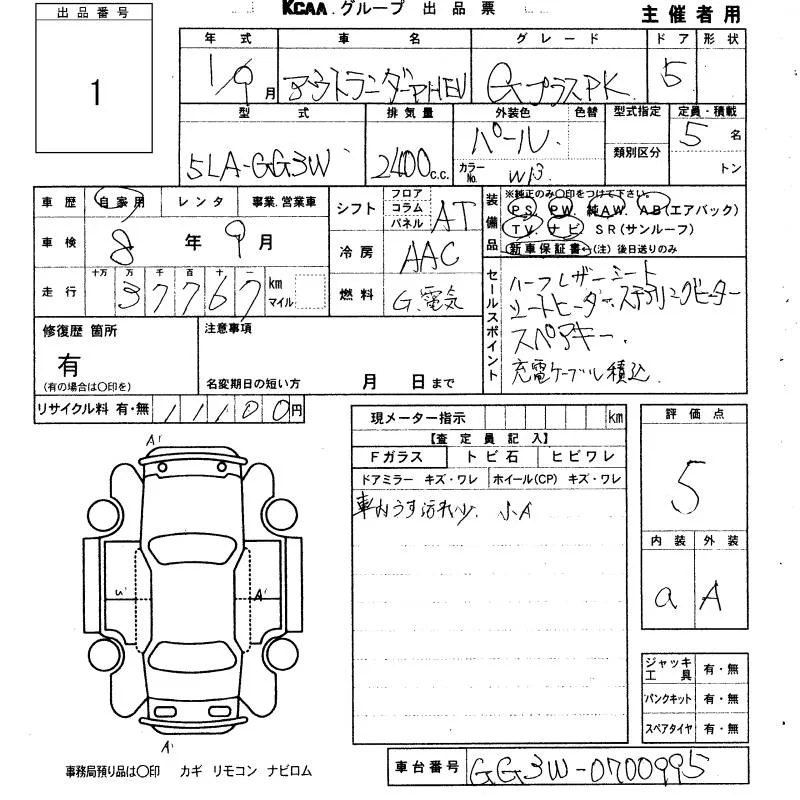 出品番号
1
KCAA.グループ 出品票
主催者用
年式 車名 グレード ドア 形状
1/9月 アウトランダーPHEV GプラスPK 5
型式 排気量 外装色 色替 型式指定 定員・積載
5LA-GG3W 2400c.c. パール 類別区分 5名
カラーNo. W13 トン
車歴 自家用 レンタ 事業.営業車
シフト フロア コラム パネル AT
装備品 ※純正のみ○印をつけて下さい。
PS PW. 純AW. AB(エアバック)
TV. ナビ SR(サンルーフ)
新車保証書←(注)後日送りのみ
車検 8年 9月
冷房 AAC
走行 十万 万 千 百 十 一
37767 km マイル
燃料 G.電気
セールスポイント
ハーフレザーシート
シートヒーター.ステアリングヒーター
スペアキー.
充電ケーブル積込.
修復歴 箇所
有
(有の場合は○印を)
注意事項
名変期日の短い方 月 日まで
リサイクル料 有・無 11100円
現メーター指示 km
【査定員記入】
Fガラス トビ石 ヒビワレ
ドアミラー キズ・ワレ ホイール(CP) キズ・ワレ
車内うす汚れ少. 小A
評価点
5
内装 外装
a A
A'
u' A'
A'
ジャッキ工具 有・無
パンクキット 有・無
スペアタイヤ 有・無
事務局預り品は○印 カギ リモコン ナビロム
車台番号 GG3W-0700995